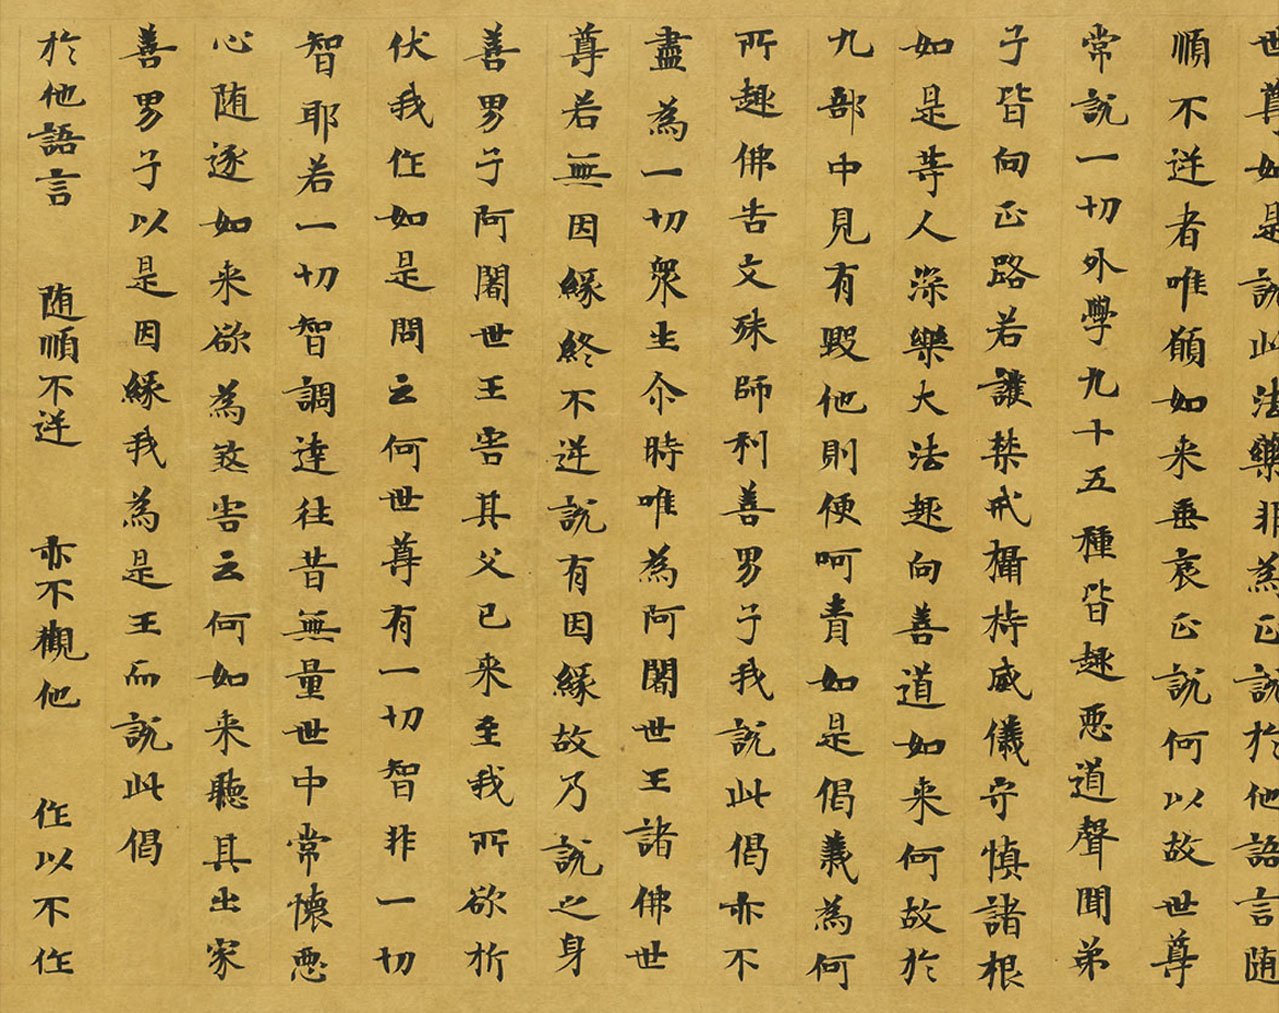 世尊如是說此法藥非為正說於他語言随
順不逆者唯願如来垂哀正說何以故世尊
常說一切外學九十五種皆趣惡道聲聞弟
子皆向正路若護禁戒攝持威儀守慎諸根
如是等人深樂大法趣向善道如来何故於
九部中見有毀他則便呵責如是偈義為何
所趣佛告文殊師利善男子我說此偈亦不
盡為一切衆生尒時唯為阿闍世王諸佛世
尊若無因緣終不逆說有因緣故乃說之身
善男子阿闍世王害其父已来至我所欲析
伏我作如是問云何世尊有一切智非一切
智耶若一切智調達往昔無量世中常懷惡
心随逐如来欲為致害云何如来聽其出家
善男子以是因緣我為是王而說此偈
於他語言 随順不逆 亦不觀他 作以不作